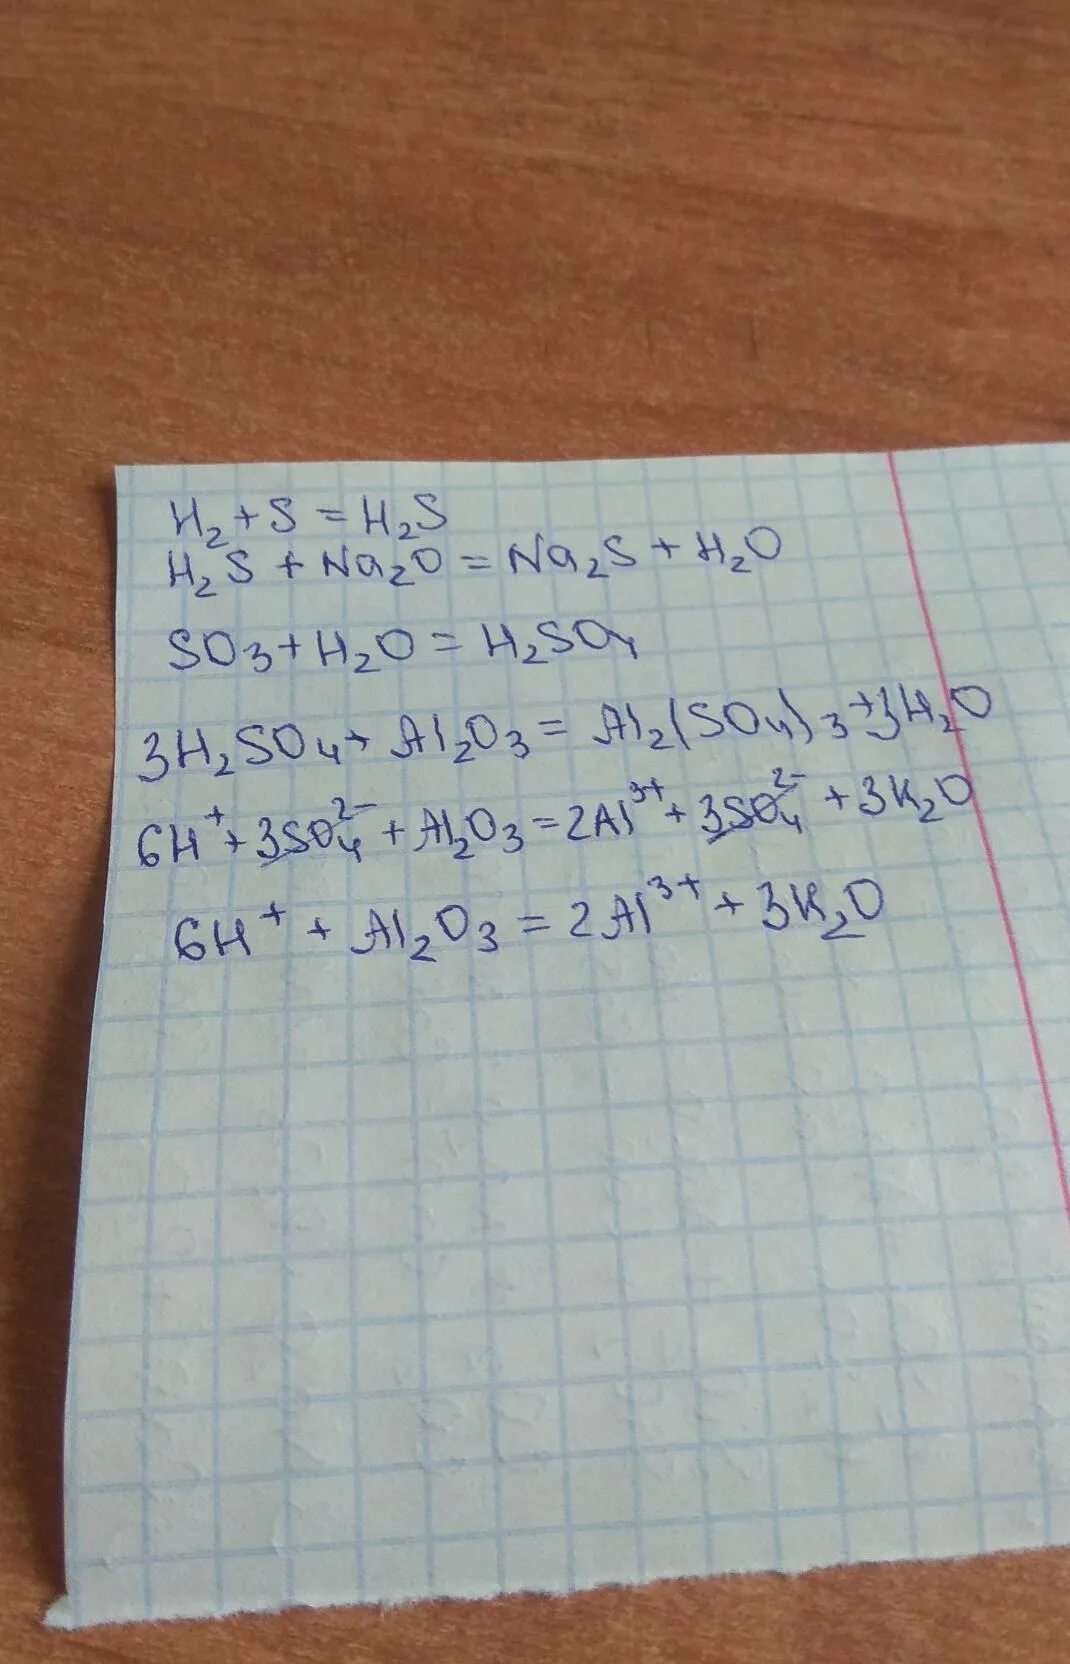 H₂ + S = H₂S
H₂S + Na₂O = Na₂S + H₂O
SO₃ + H₂O = H₂SO₄
3H₂SO₄ + Al₂O₃ = Al₂(SO₄)₃ + 3H₂O
6H⁺ + 3SO₄²⁻ + Al₂O₃ = 2Al³⁺ + 3SO₄²⁻ + 3K₂O
6H⁺ + Al₂O₃ = 2Al³⁺ + 3K₂O